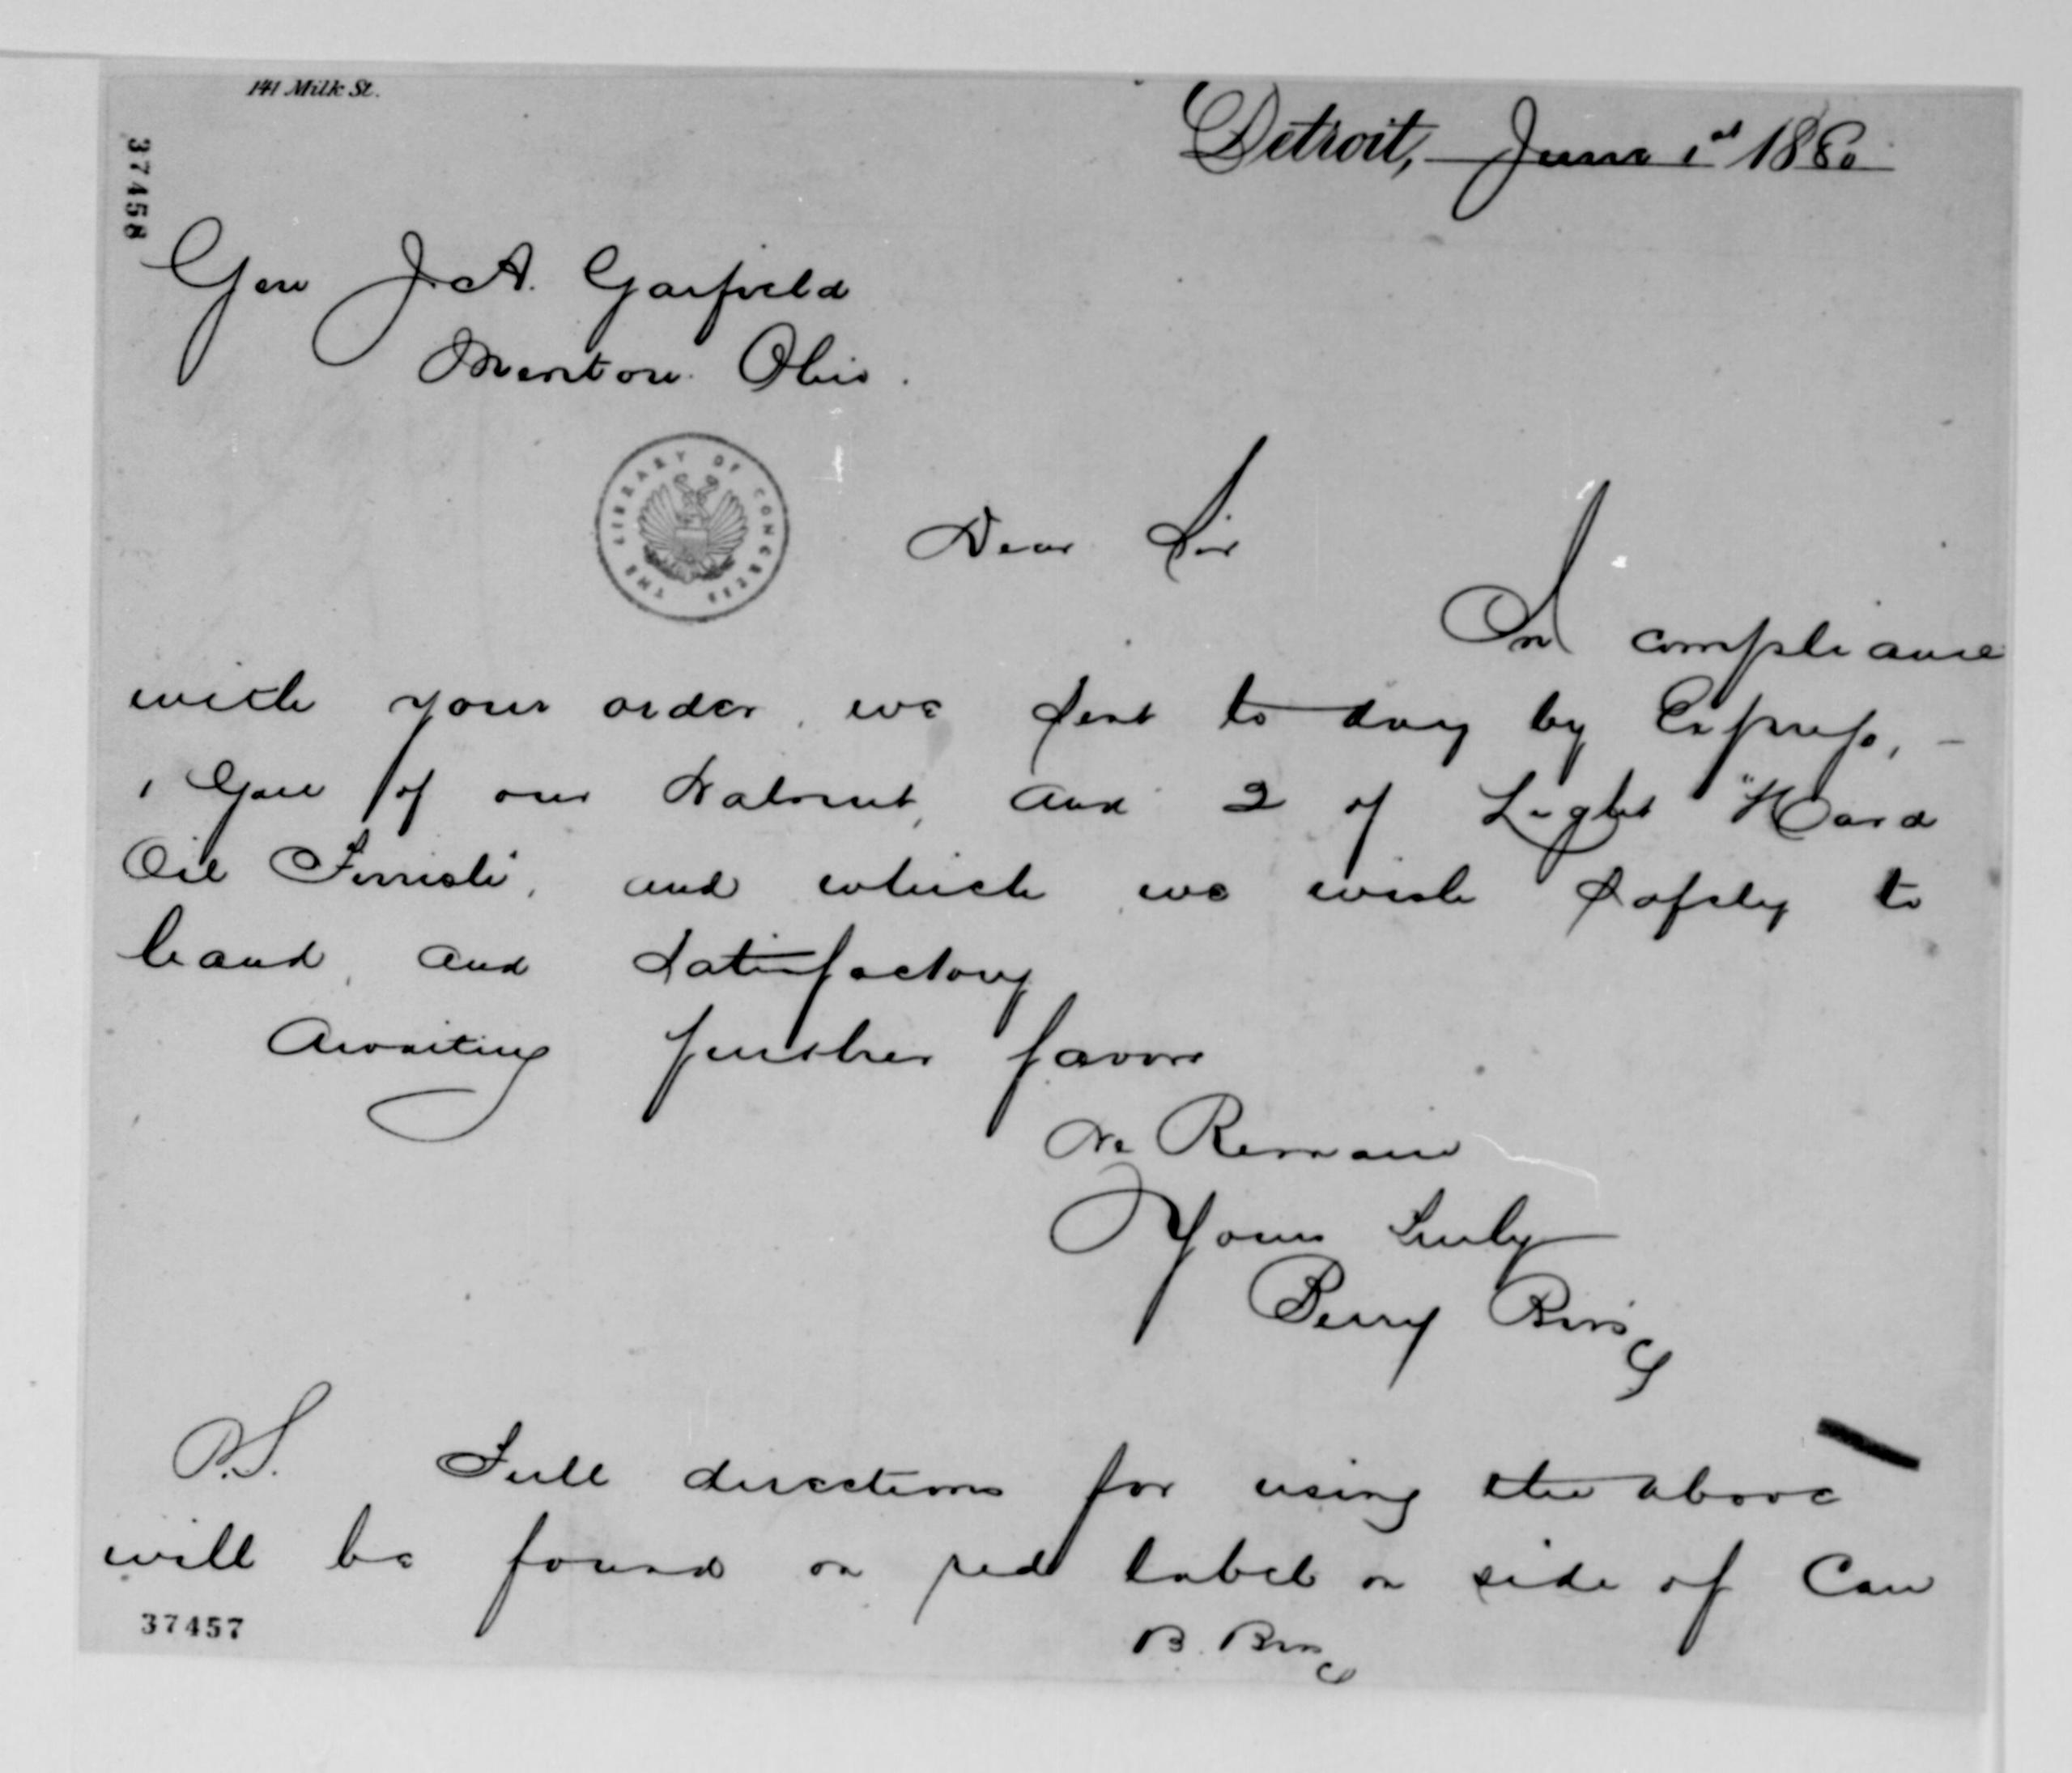 141 Milk St.
Detroit, June 1st 1880
37458
Gen J. A. Garfield
Mentor Ohio.
THE LIBRARY OF CONGRESS
Dear Sir
In compliance
with your order, we sent to day by Express, –
1 Gall of our Walnut, and 2 of Light "Hard
Oil Finish", and which we wish safely to
hand, and satisfactory
Awaiting further favors
We Remain
Yours truly
Berry Bros
P.S. Full directions for using the above
will be found on red label on side of Can
37457
B. Bros